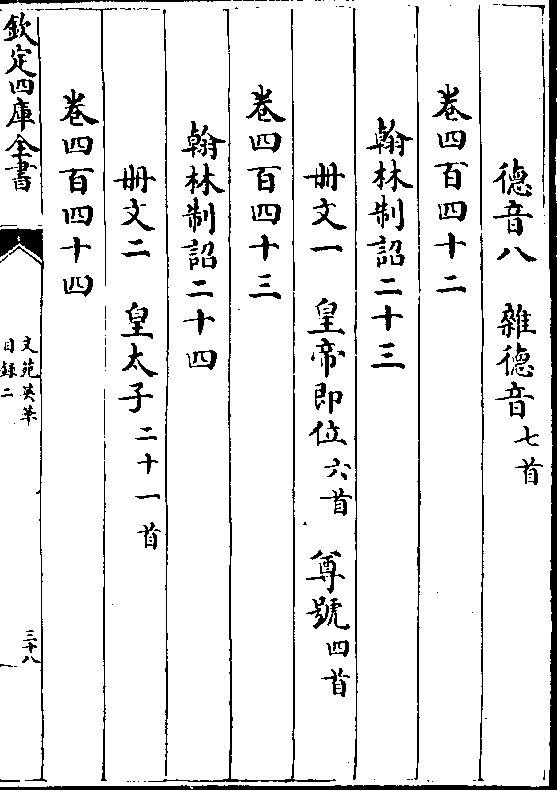 德音八　雜德音七首
卷四百四十二
翰林制詔二十三
册文一　皇帝即位六首　尊號四首
卷四百四十三
翰林制詔二十四
册文二　皇太子二十一首
卷四百四十四
欽定四庫全書
文苑英華
目録二
三十八